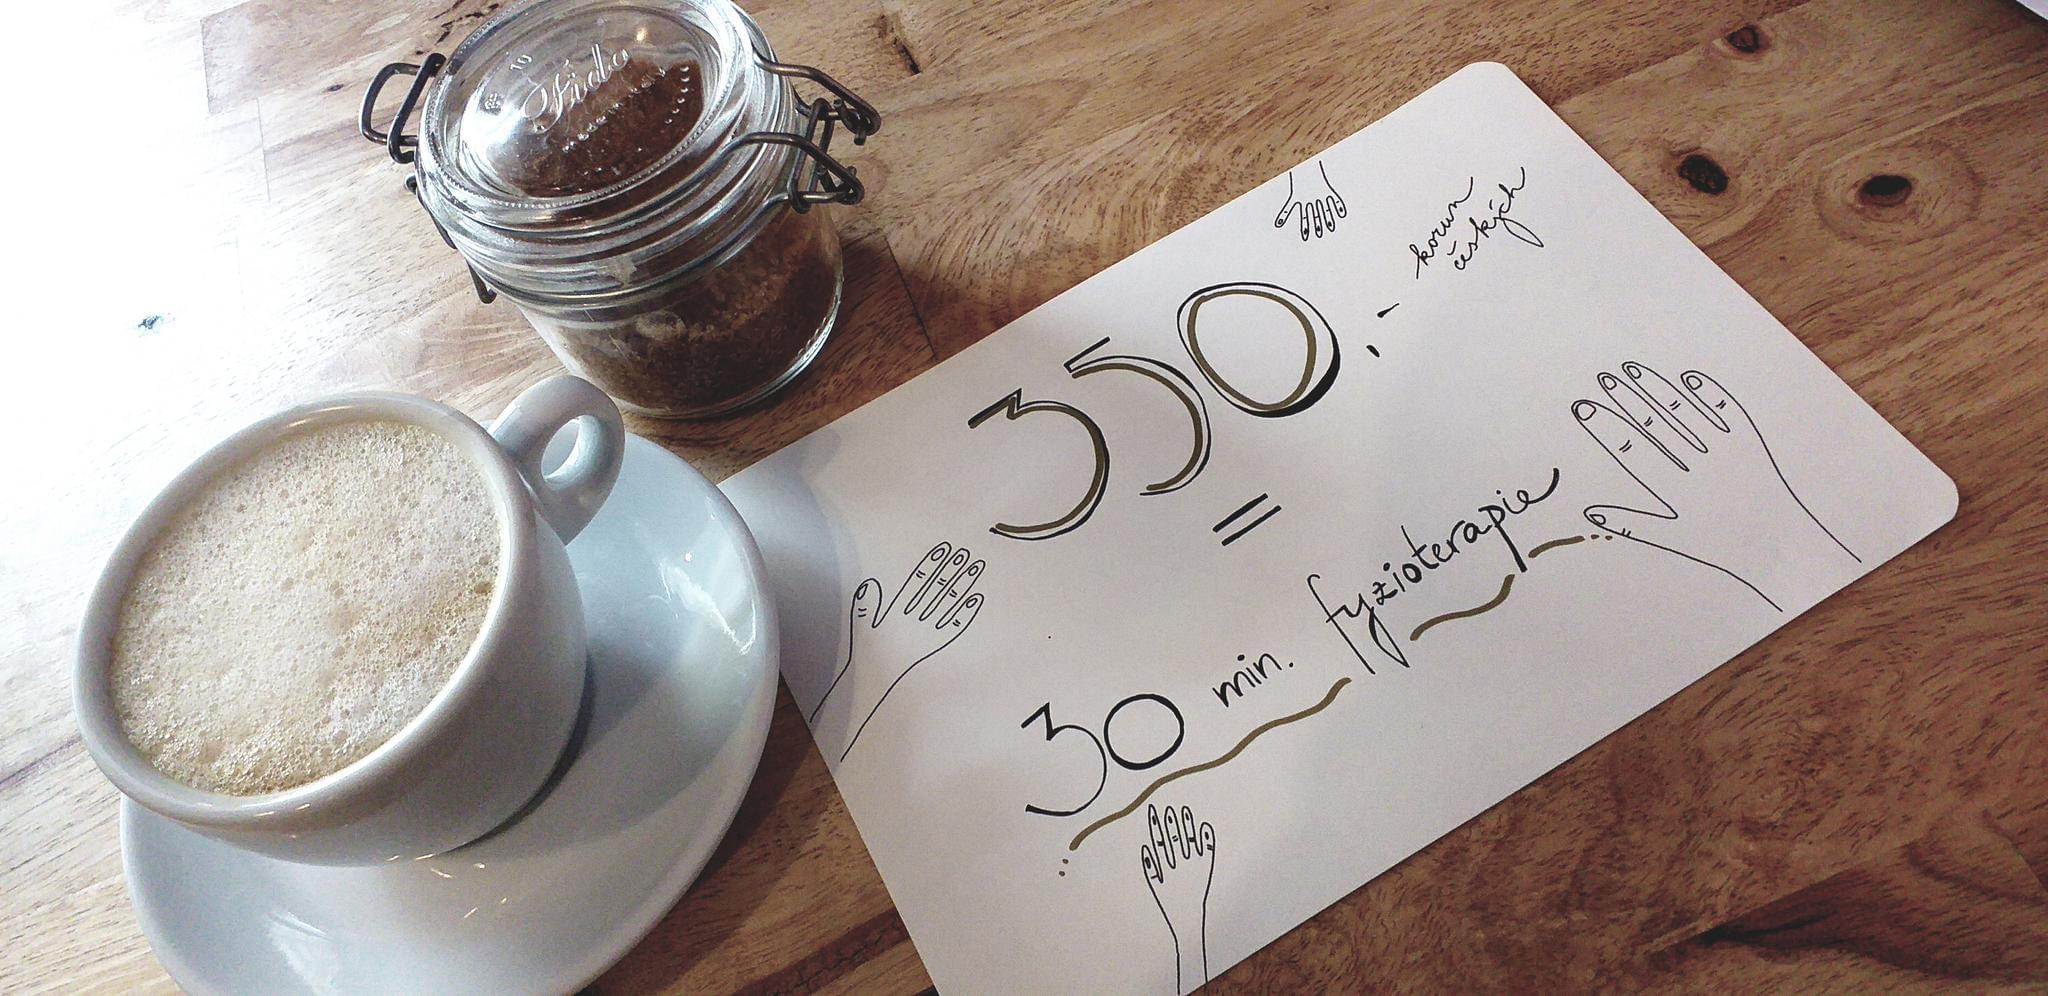 10
Fido
350,-
korun
českých
=
30 min. fyzioterapie